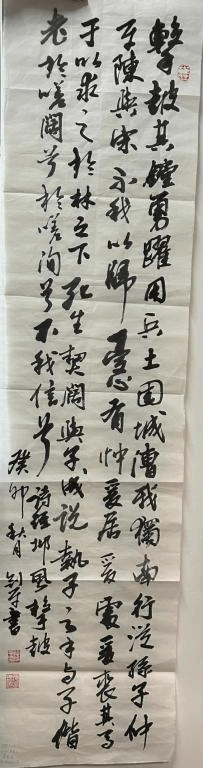 擊鼓其鏜踴躍用兵土國城漕我獨南行從孫子仲
平陳與宋不我以歸憂心有忡爰居爰處爰喪其馬
于以求之於林之下死生契闊與子成說執子之手與子偕
老於嗟闊兮於嗟洵兮不我信兮
詩經邶風擊鼓
癸卯秋月